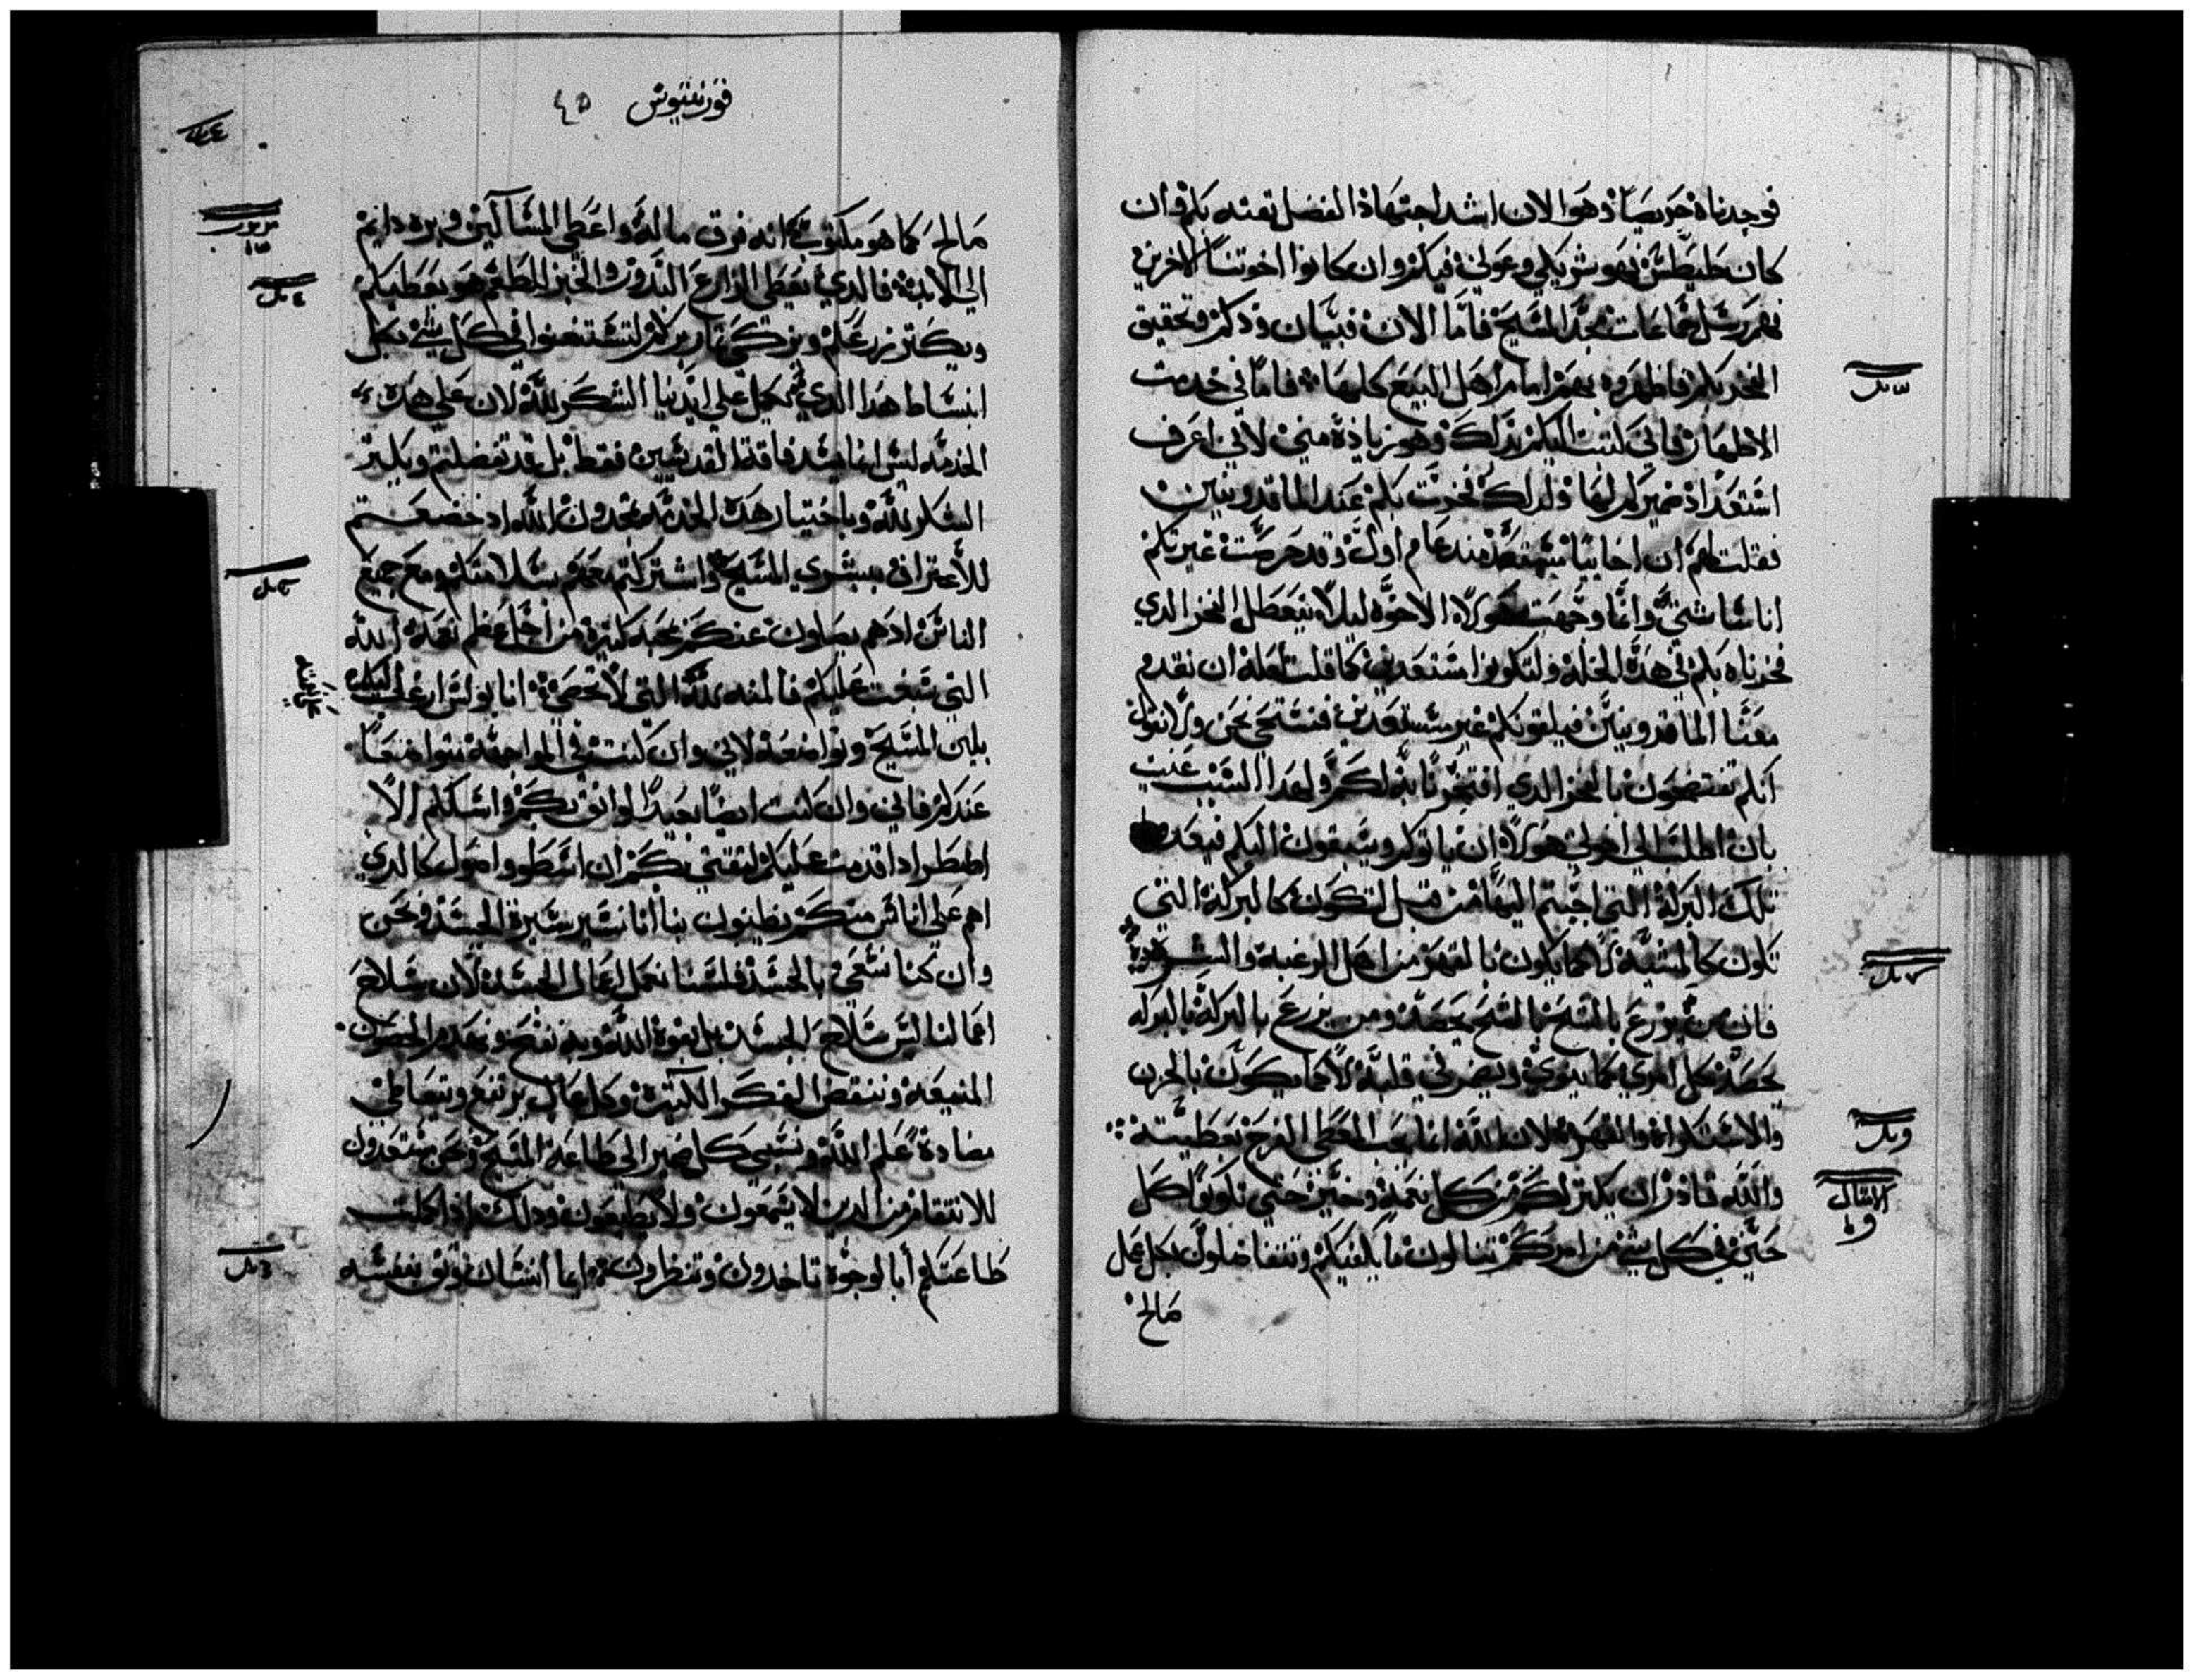 فوجدناه حريصاً وهو الان اشد اجتهادا لفضل تقته بكم وان
كان طيطس فهو شريكي وعوني فيكم وان كانوا اخوتنا الاخرين
فهم رسل جماعات مجد المسيح فاما الان فبيان ودكم وتحقيق
الفخر بكم فاظهروه بهم امام اهل البيع كلها فاما في خدمت
الاطهار فاني كتبت اليكم بذلك وهو زيادة مني لاني اعرف
استعداد ضميركم لها ولدلك فخرت بكم عند الماقدونيين
فقلت لهم ان اخاييا متهيه مند عام اول وقد حرصت غيرتكم
اناسا شتي وانما وجهت هولاء الاخوه ليلا يتعطل الفخر الدي
فخرناه بكم في هده الخله ولتكونوا مستعدين كما قلت لعله ان نقدم
معنا الماقدونيين فيلقونكم غير مستعدين فنستحي نحن ولا نقول
انكم تفتضحون بالفخر الدي افتخرنا به لكم ولهدا السبب عنيت
بان اطلب الي اخوتي هولاء ان ياتوكم ويسبقون اليكم فيعدوا
تلك البركة التي اجبتم اليها من قبل لتكون كالبركة التي
تكون كالمشية لا كما يكون بالقهر من اهل الرغبه والشره
فان من يزرع بالشح بالشح يحصد ومن يزرع بالبركة بالبركه
يحصد كل امري كما ينوي ويضمر في قلبه لا كما يكون بالحزن
والاستكراه والقهر لان الله انما يحب المعطي الفرح بعطيته
والله قادر ان يكثر لكم من كل نعمة وخير حتي تكونوا كل
حين في كل شي من امركم تنالون ما يكفيكم وتتفاضلون بكل عمل
صالح
قورنتيوس ٤٥
صالح كما هو مكتوب انه فرق ماله واعطي المساكين وبره دايم
الي الابد فالدي يعطي الزارع البدور والخبز للطعم هو يعطيكم
ويكتر زرعكم ويزكي تمار بركم لتستغنوا في كل شي بكل
انبساط هدا الدي يكمل علي ايدينا الشكر لله لان علي هده
الخدمه ليس انما يسد فاقة القديسين فقط بل قد تفضلتم ويكتر
الشكر لله وباختيار هده الخدمه تمجدون الله اد خضعتم
للاعتراف ببشري المسيح واشتركتم معهم بسلامتكم ومع جميع
الناس ادهم يصلون عنكم بمحبه كتيرة من اجل عظم نعمة الله
التي سبغت عليكم فالمنه لله التي لا تحصي انا بولس ارغب اليكم
بلين المسيح وتواضعه لاني وان كنت في المواجهة متواضعاً
عندكم فاني وان كنت ايضاً بعيداً لواثق بكم واسلكم الا
اضطر ادا قدمت عليكم لتقتي بكم ان اسطو واصول كالدي
اهم علي اناس منكم يظنون بنا انا نسير سيرة الجسد ونحن
وان كنا نسعي بالجسد فلسنا نعمل اعمال الجسد لان سلاح
اعمالنا ليس سلاح الجسد بل بقوة الله وبه نفتح ونهدم الحصون
المنيعة وننقض الفكر الكتيرة وكل عال يرتفع ويتعاطي
مضادة علم الله ونسبي كل ضمير الي طاعة المسيح ونحن مستعدون
للانتقام من الدين لا يسمعون ولا يطيعون ودلك ادا كملت
طاعتكم أبالوجوه تاخدون وتنظرون ايما انسان وتق بنفسه